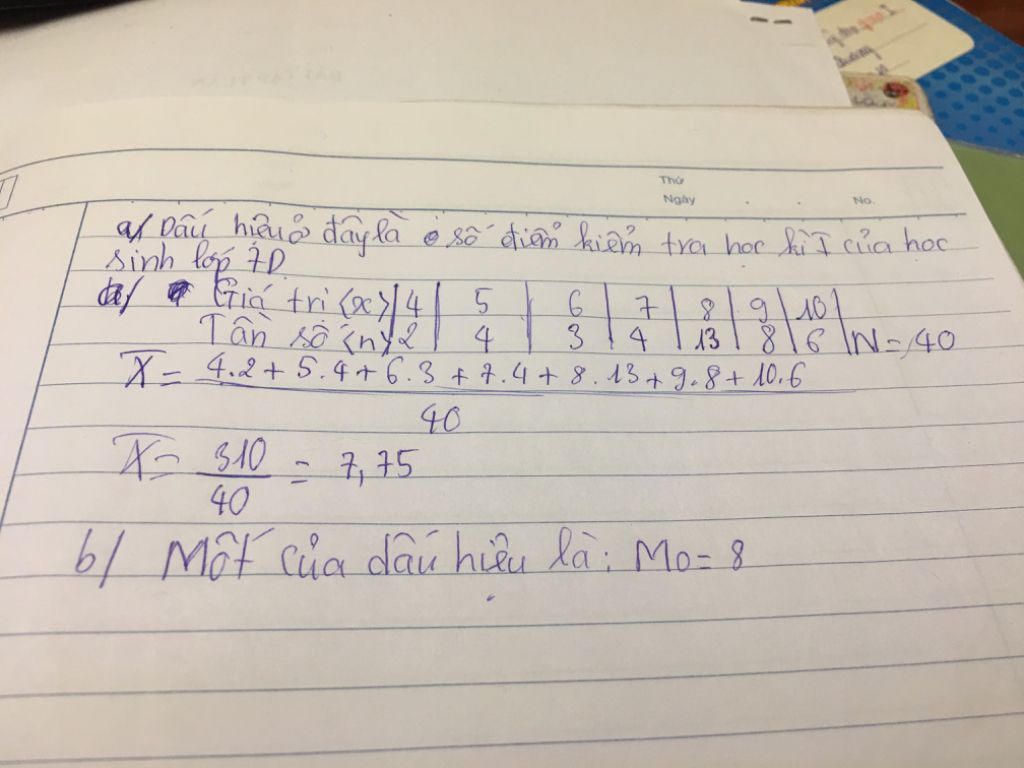 Thứ
Ngày . . No.
a/ Dấu hiệu ở đây là số điểm kiểm tra học kì I của học
sinh lớp 7D
Giá trị (x) 4 5 6 7 8 9 10
Tần số (n) 2 4 3 4 13 8 6 N = 40
X = 4.2 + 5.4 + 6.3 + 7.4 + 8.13 + 9.8 + 10.6
40
X = 310
40 = 7,75
b/ Mốt của dấu hiệu là: Mo = 8